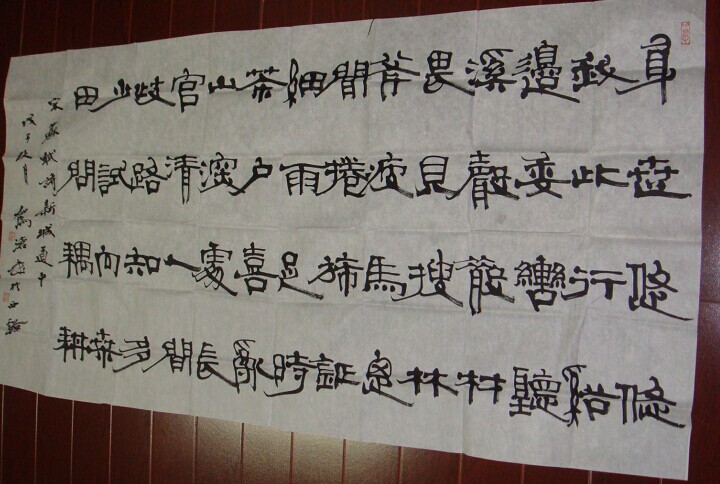 身世悠悠
我此行谿
邊委轡聽
溪聲散材
畏見搜林
斧疲馬思
聞捲旆鉦
細雨足時
茶戶喜亂
山深處長
官清人間
歧路知多
少試向桑
田問耦耕
宋蘇軾詩新城道中
戊子